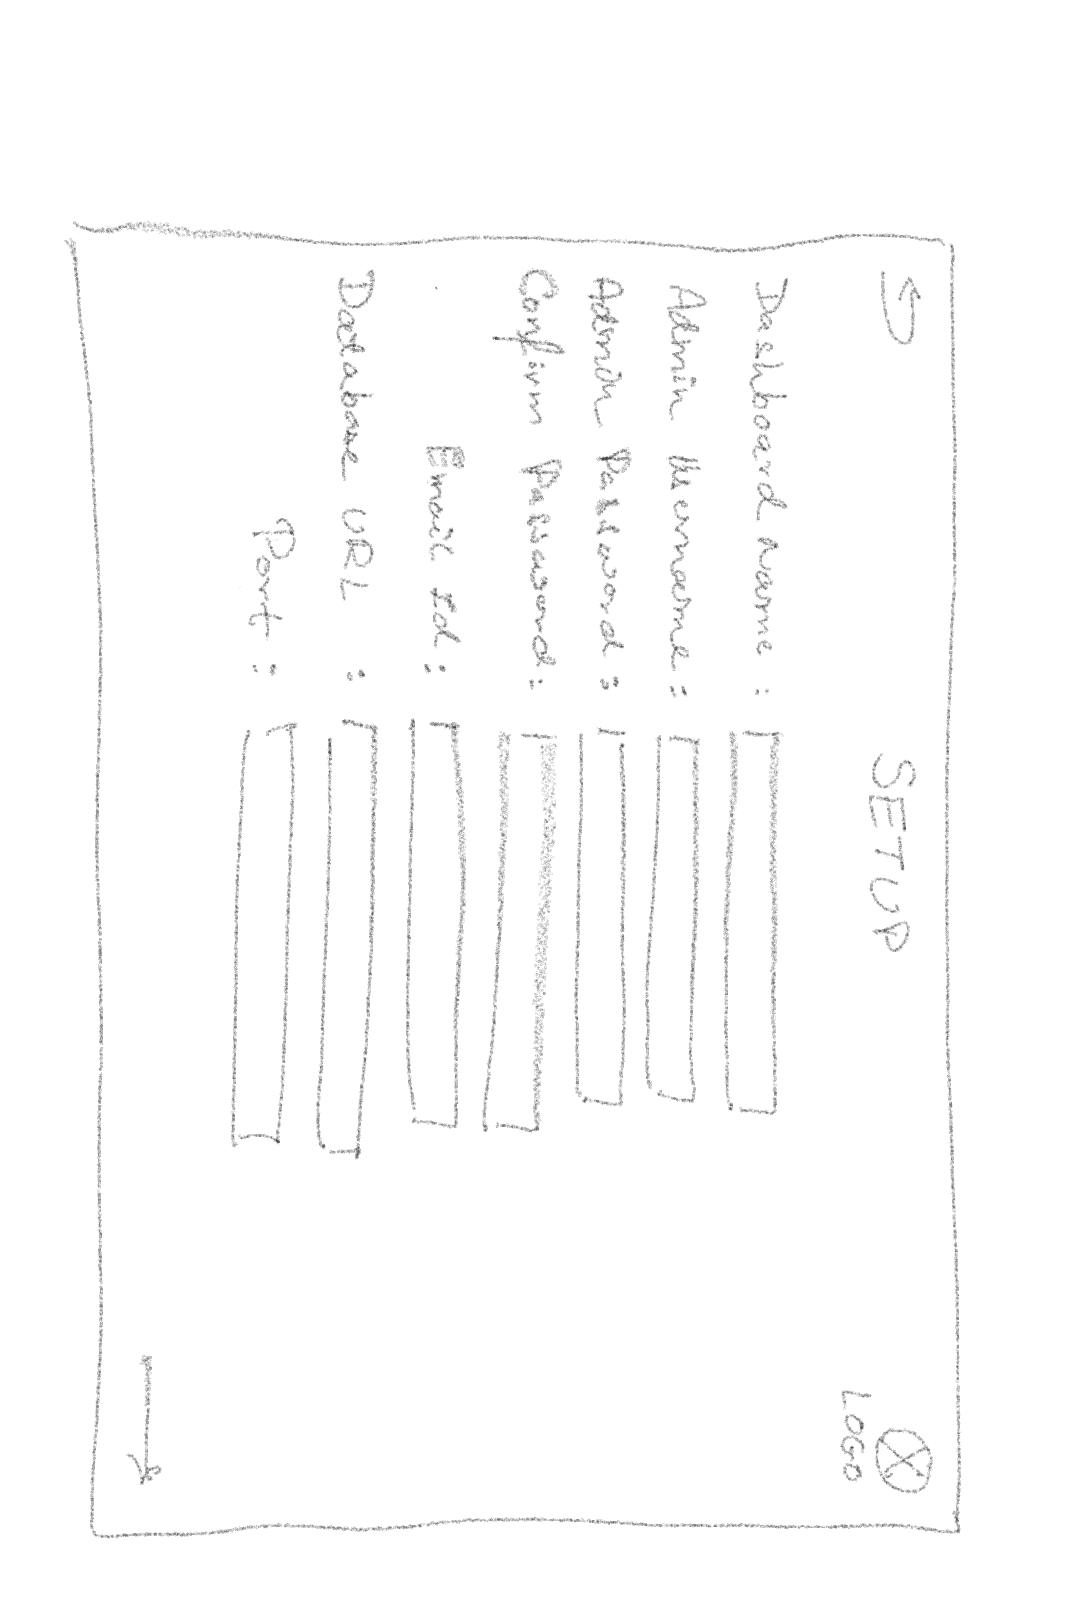 SETUP
LOGO
Dashboard Name :
Admin Username :
Admin Password :
Confirm Password :
Email Id :
Database URL :
Port :